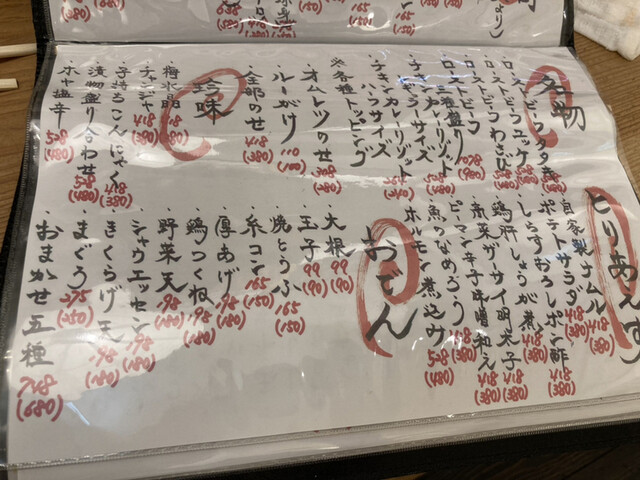 名物
・ローストビーフユッケ 528 (480)
・ローストビーフわさび 528 (480)
・ローストビーフ
三種盛り 1078 (980)
・チキンカレーリゾット
レギュラーサイズ 528 (480)
・チキンカレーリゾット
ハーフサイズ 264 (240)
※各種トッピング
・オムレツのせ 308 (280)
・ルーがけ 110 (100)
・全部のせ 418 (380)
珍味
・梅水晶 418 (380)
・チャンジャ 418 (380)
・子持ちこんにゃく 418 (380)
・漬物盛り合わせ 528 (480)
・ホヤ塩辛 528 (480)
とりあえず
・自家製ナムル 418 (380)
・ポテトサラダ 418 (380)
・しらすおろしポン酢 418 (380)
・鶏肝しょうが煮 418 (380)
・青菜ザーサイ明太子 418 (380)
・ピーマン辛子味噌和え 418 (380)
・魚のなめろう 418 (380)
・ホルモン煮込み 528 (480)
おでん
・大根 99 (90)
・玉子 99 (90)
・焼とうふ 165 (150)
・糸コン 165 (150)
・厚あげ 198 (180)
・鶏つくね 198 (180)
・野菜天 198 (180)
・シャウエッセン 198 (180)
・きくらげ天 198 (180)
・まぐろ 275 (250)
・おまかせ五種 748 (680)